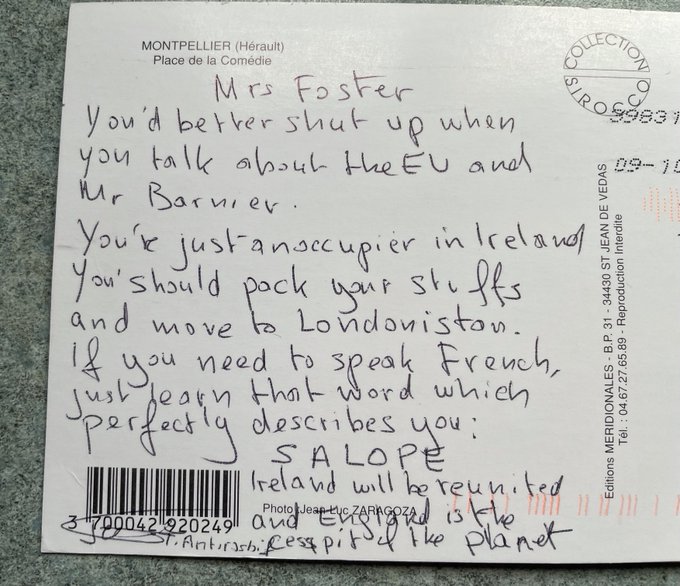 MONTPELLIER (Hérault)
Place de la Comédie
COLLECTION SIROCCO
Mrs Foster
You'd better shut up when
you talk about the EU and
Mr Barnier.
You're just an occupier in Ireland
You should pack your stuffs
and move to Londonistan.
If you need to speak French,
just learn that word which
perfectly describes you:
SALOPE
Ireland will be reunited
and England is the
cesspit of the planet
Photo Jean-Luc ZARAGOZA
3 700042 920249
09-10
Editions MERIDIONALES - B.P. 31 - 34430 ST JEAN DE VEDAS
Tél. : 04.67.27.65.89 - Reproduction Interdite